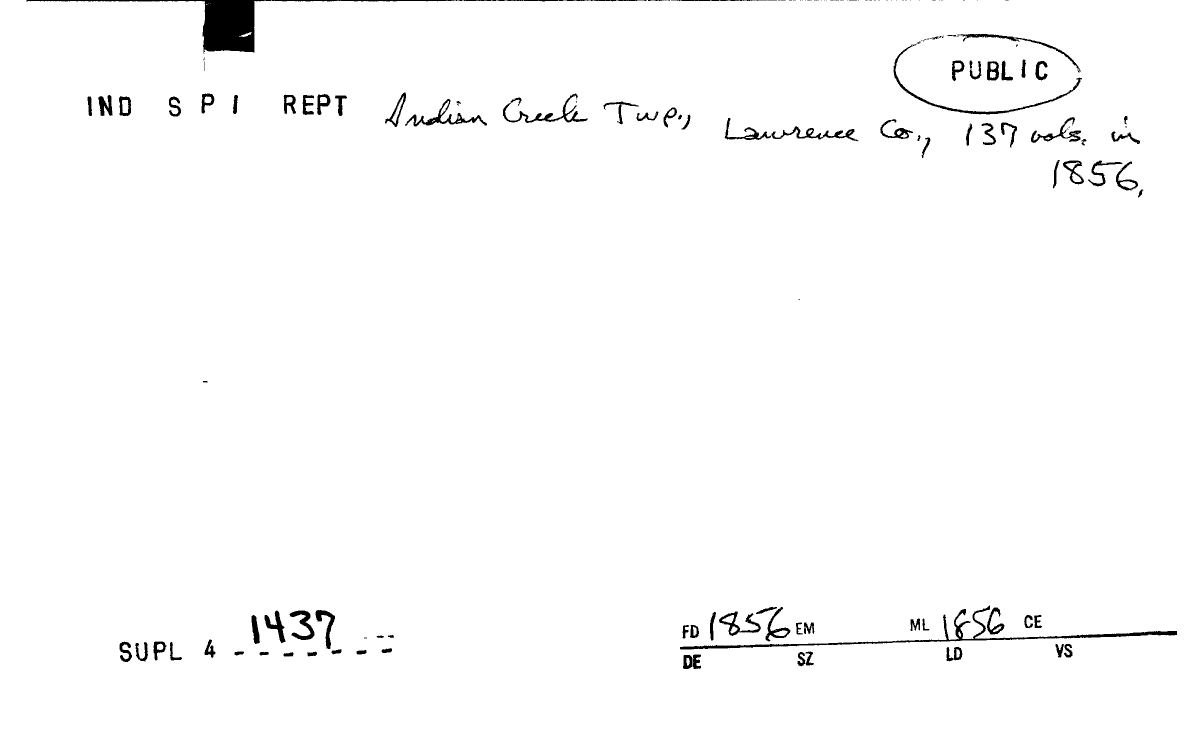 PUBLIC
IND S P I REPT Indian Creek Twp., Lawrence Co., 137 vols. in
1856.
SUPL 4 1437
FD 1856 EM ML 1856 CE
DE SZ LD VS